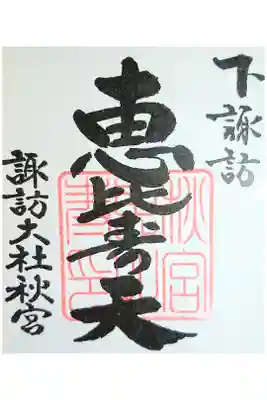 下諏訪
恵比寿天
諏訪大社秋宮